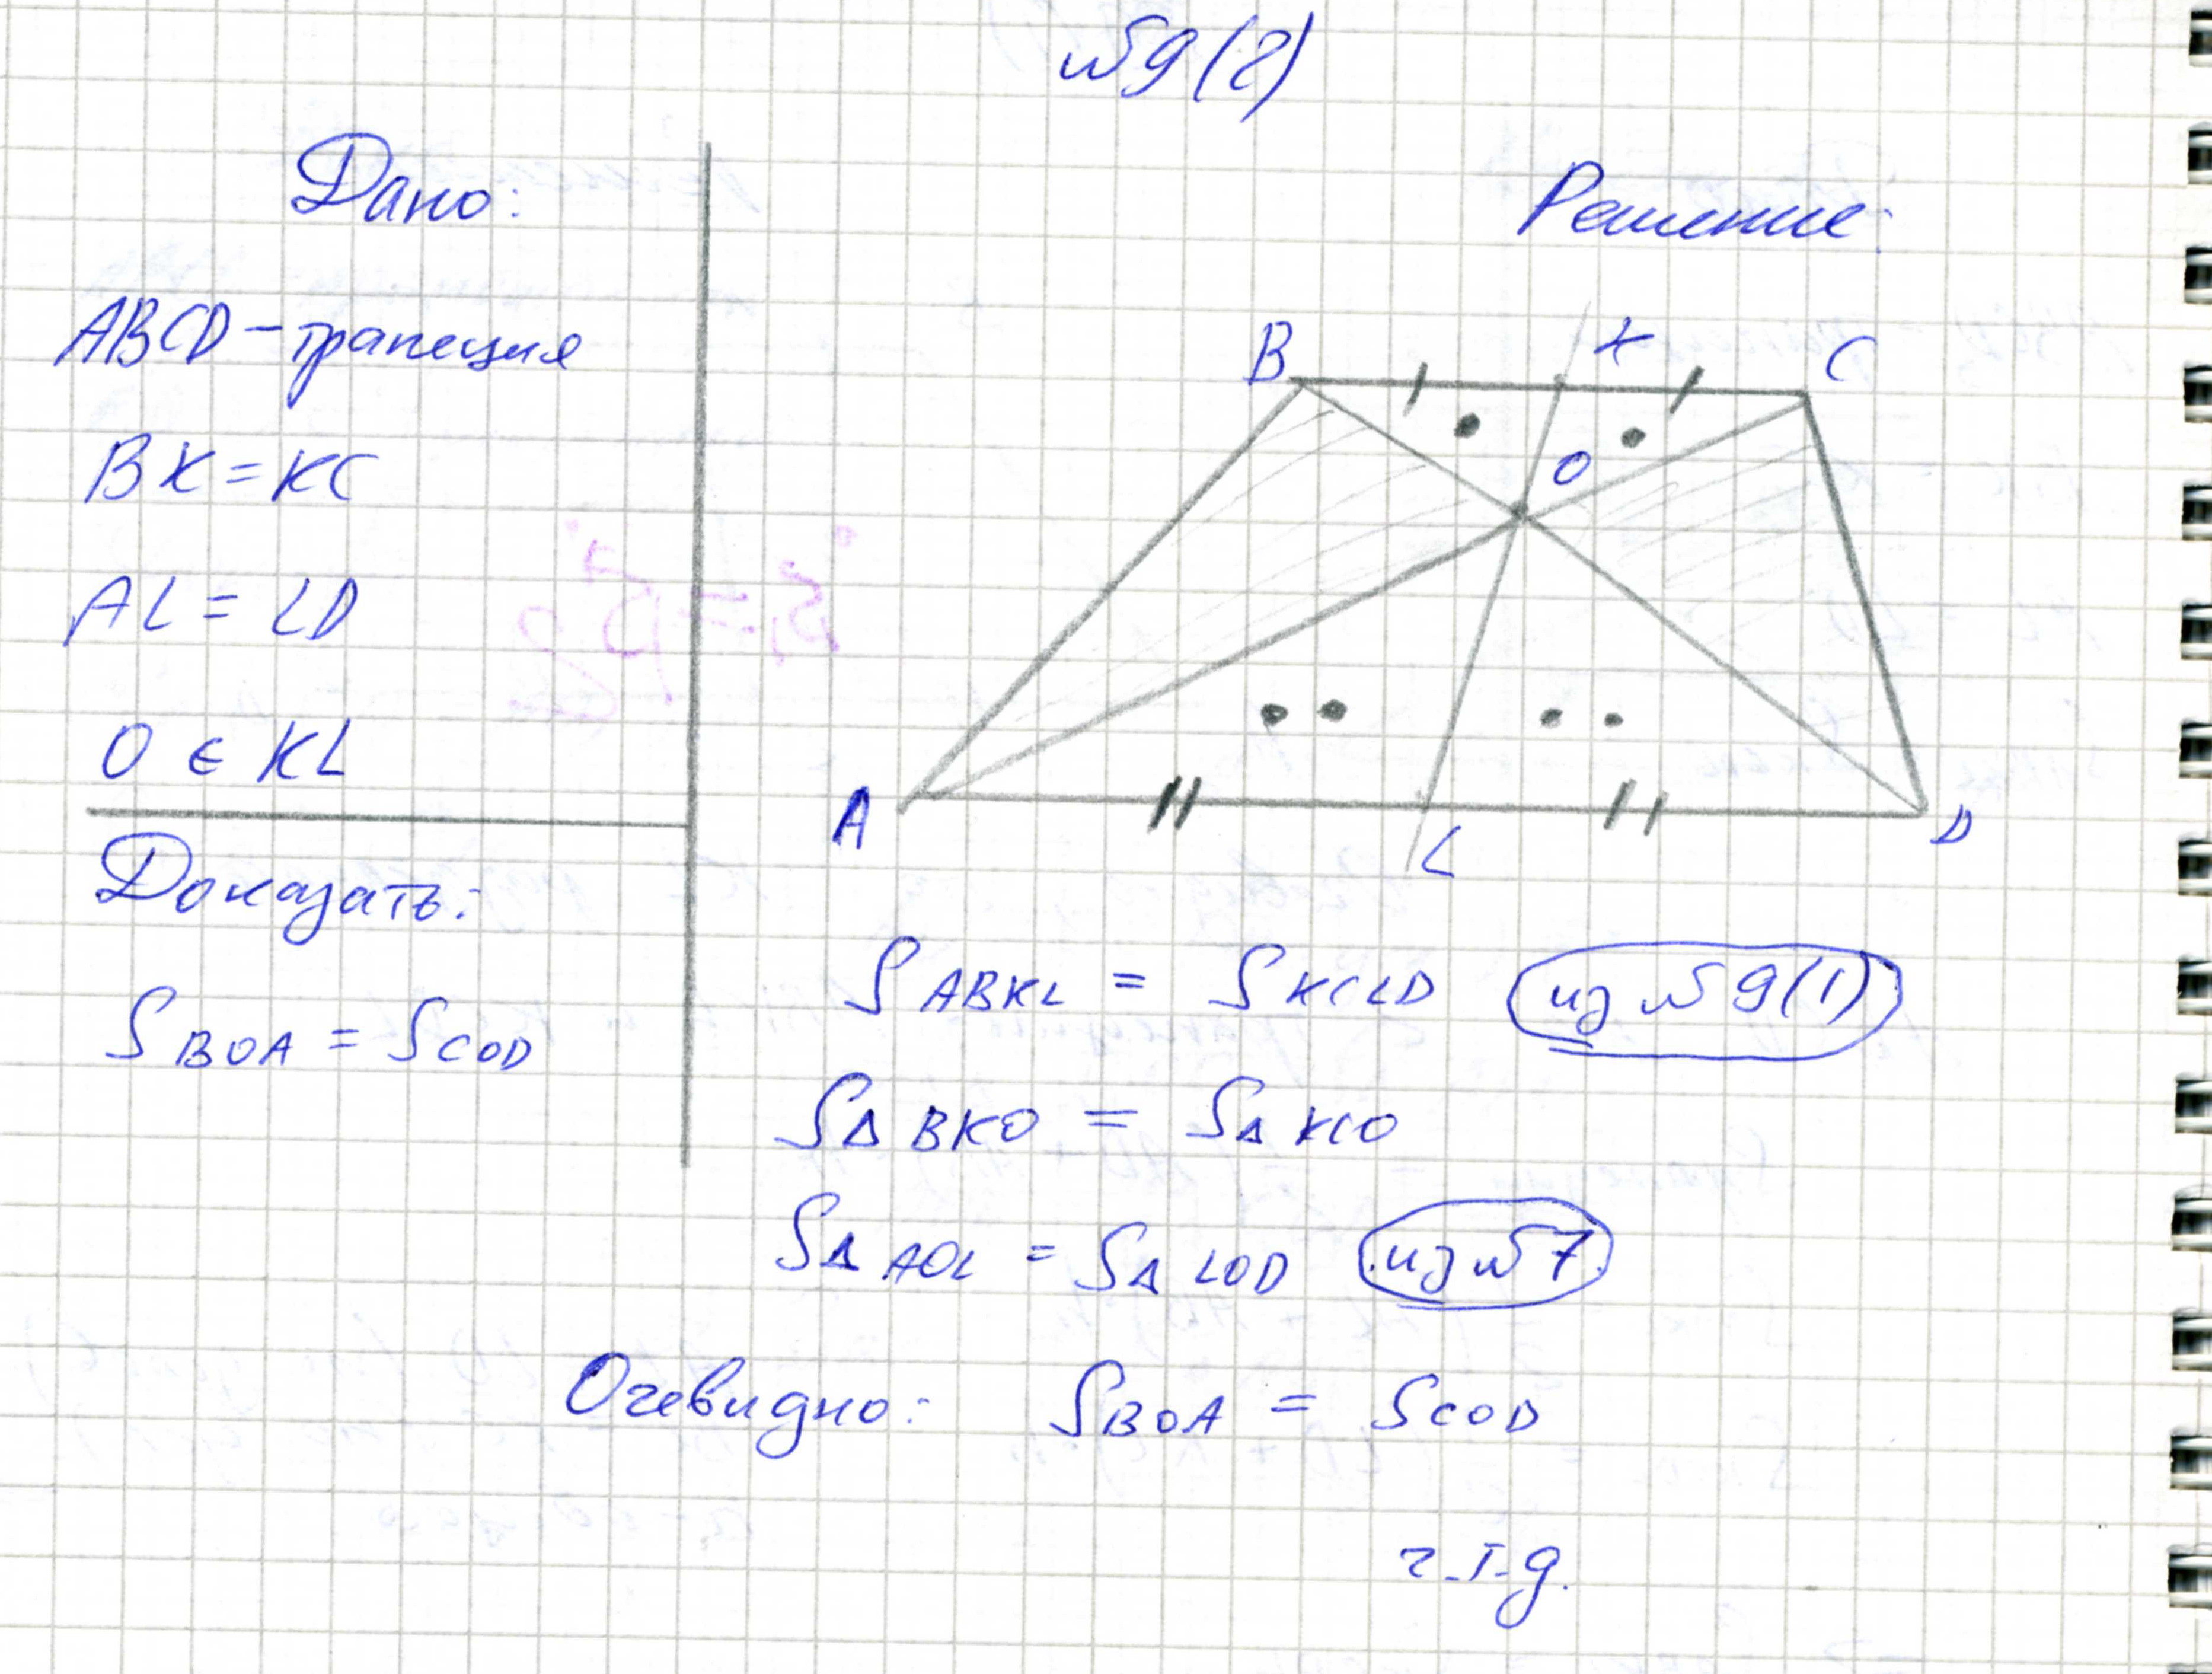 №9(2)
Дано:
ABCD - трапеция
BK = KC
AL = LD
O ∈ KL
Доказать:
S BOA = S COD
Решение:
B K C
O
A L D
S ABKL = S KCLD из №9(1)
S Δ BKO = S Δ KCO
S Δ AOL = S Δ LOD из №7
Очевидно: S BOA = S COD
ч.т.д.